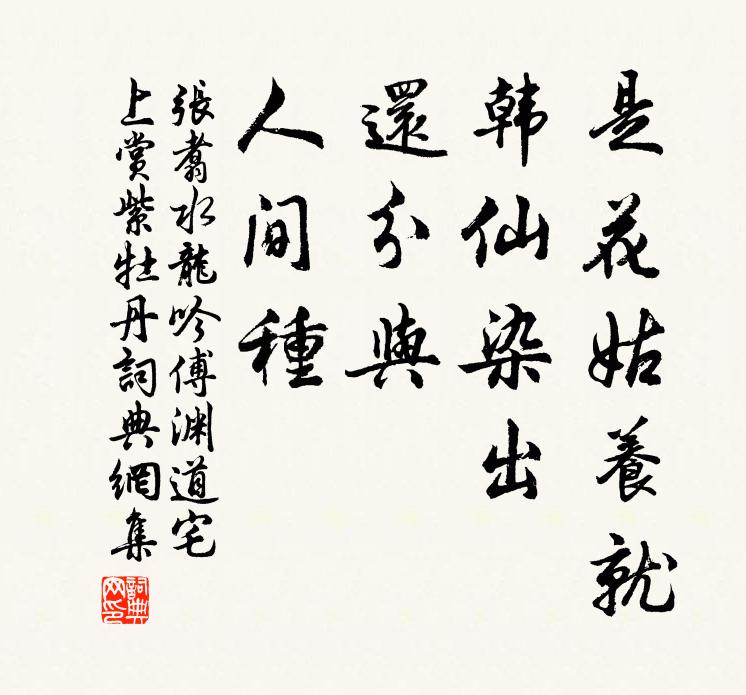 是花姑養就
韩仙染出
還分與
人间種
張翥水龍吟傅渊道宅
上赏紫牡丹詞典網集
詞典网印